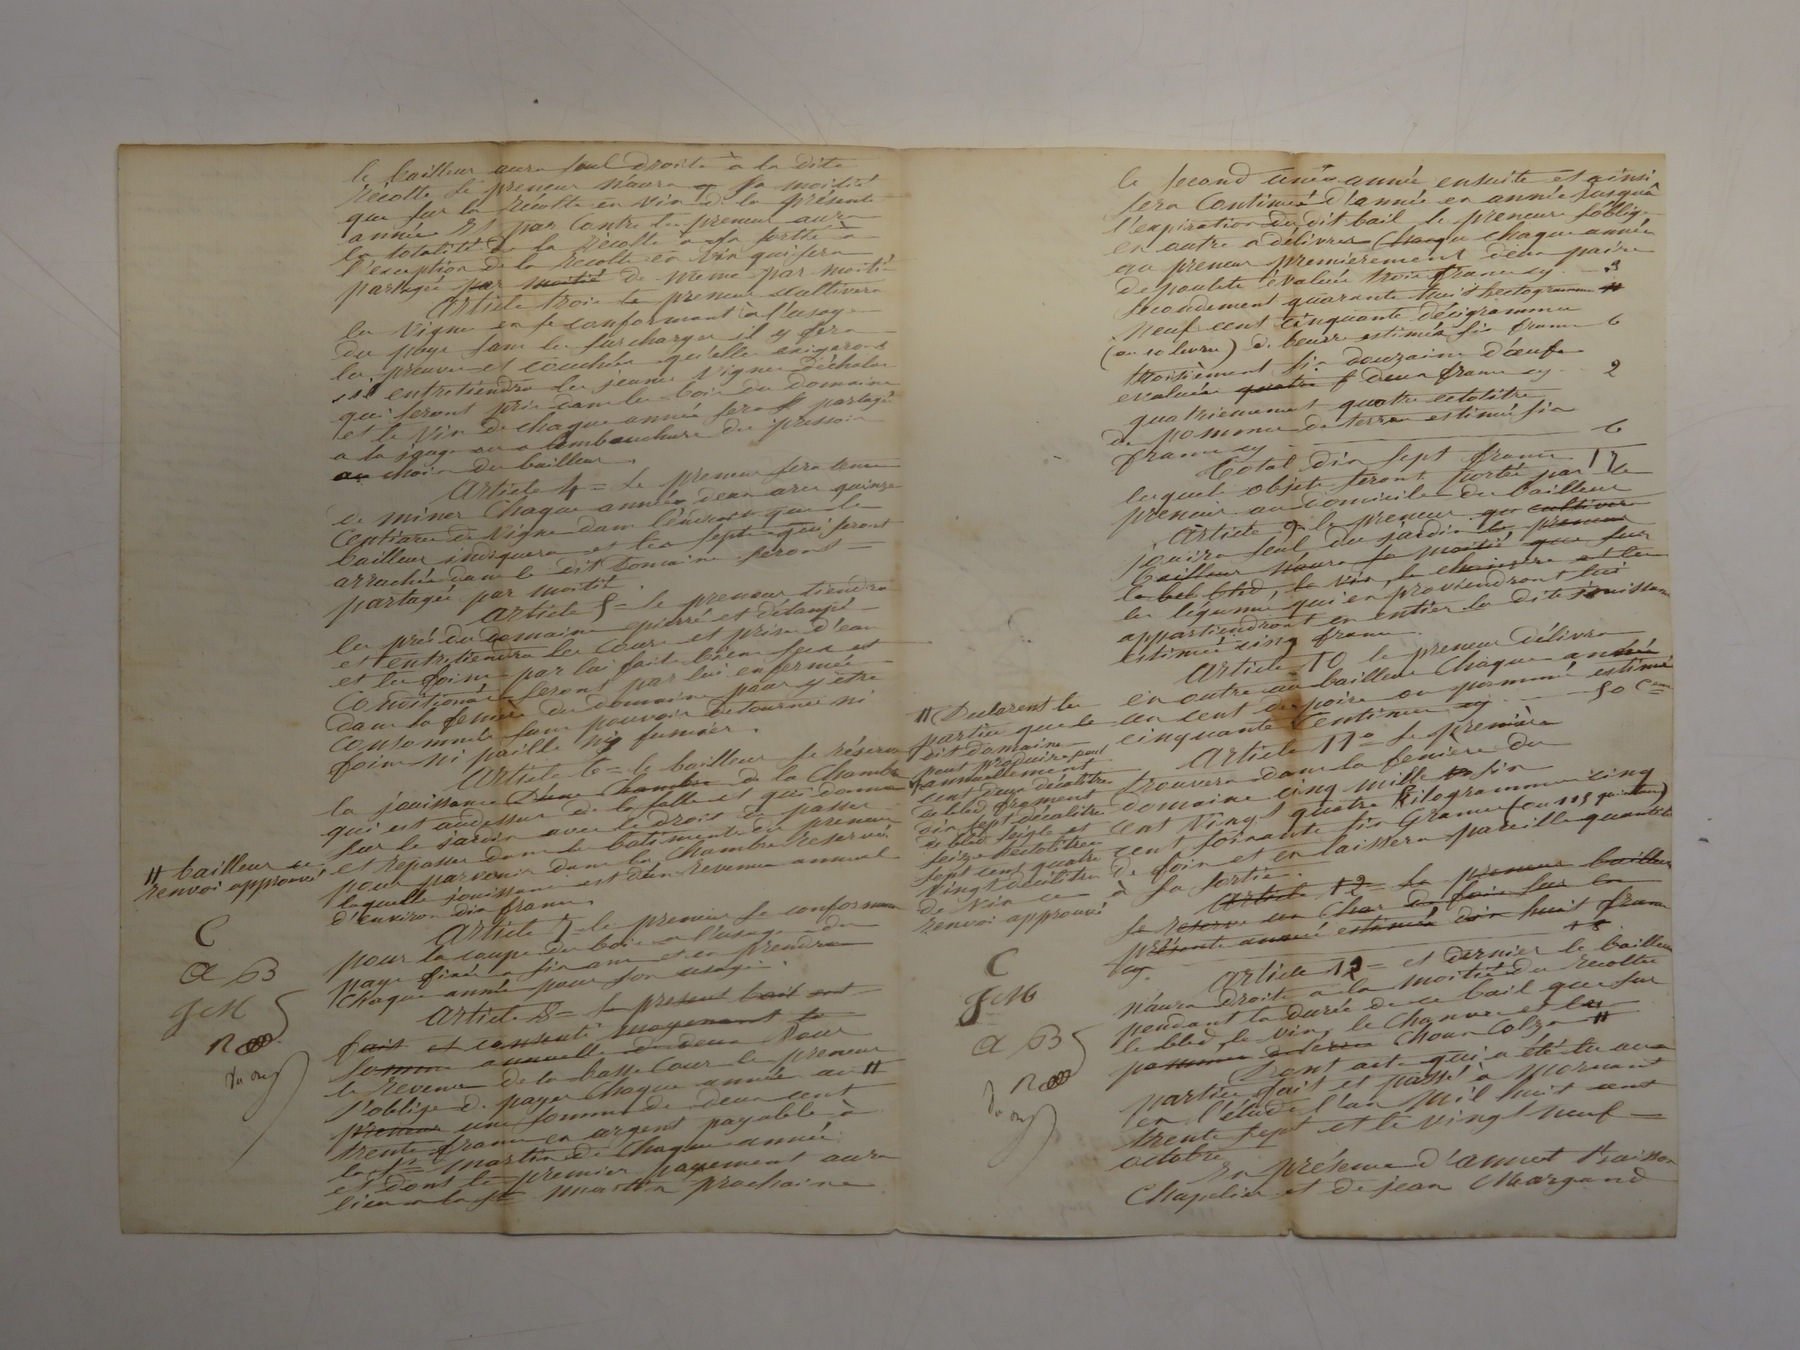 le bailleur aura seul droite à la dite
Récolte le preneur n'aura q sa moitié
que sur la Récolte en vin de la présente
année Et par Contre le preneur aura
la totalité de la Récolte à sa sortie à
l'exception de la Recolte en vin qui sera
partagée par moitié de meme par moitié
Article trois le preneur Cultivera
la Vigne en se conformant à l'usage
du pays sans les surcharger il y fera
les preuves et couchées qu'elles exigerons
et entretiendra les jeunes Vignes d'échalas
qui seront pris dans les bois du domaine
et le Vin de chaque année sera partagé
a la jauge ou a lembouchure du pressoir
au choix du bailleur.
Article 4 = le preneur sera tenu
de miner Chaque année deux ares quinze
Centiares de Vigne dans l'endroit que le
bailleur indiquera et les septs qui seront
arrachés dans le dit Domaine seront =
partagés par moitié.
Article 5 = le preneur tiendra
les prés du domaine épierré et détaupé
et entretiendra les Cours et prises d'eau
et les foins par lui fait bien secs et
Conditionés seront par lui enfermés
dans la fenière du domaine pour y être
Consommés sans pouvoir detourner ni
foins ni paille ni fumier.
Article 6 = le bailleur se réserve
la jouissance d'une Chambre de la Chambre
qui est audessus de la salle et qui donne
sur le jardin avec le droit de passer
et repasser dans les batiments du preneur
pour parvenir dans la Chambre reservée
laquelle jouissance est d'un Revenu annuel
d'environ dix francs.
Article 7 = le preneur se conformera
pour la coupe du bois a l'usage du
pays fixé a six ans et en prendra
Chaque année pour son usage.
Article 8 = le présent bail est
fait et consenti moyenant la
somme annuelle de deux Pour
le Revenu de la basse Cour le preneur
s'oblige de payer Chaque année au #
preneur une somme de deux cent
trente francs en argent payable à
la St Martin de Chaque année
et dont le premier payement aura
lieu a la St Martin prochaine
# bailleur ce
Renvoi approuvé
C
A B
J C M
le second une année ensuite et ainsi
sera Continué d'année en année jusqu'à
l'expiration du dit bail le preneur s'oblige
en outre a délivrer Chaque chaque année
au preneur premierement deux paires
de poulets évalués trois francs cy 3
secondement quarante huit hectogrammes #
neuf cent cinquante décigrammes
(ou 10 livres) de beurre estimés six francs 6
troisièment six douzaine d'œufs
evalués quatre f deux francs cy 2
quatriemement quatre ectolitre
de pommes de terre estimés six
francs cy 6
Total dix sept francs 17
lesquels objets seront portés par le
preneur au domicile du bailleur
Article 9 le preneur qu cultivera
jouira seul du jardin le preneur
bailleur n'aura sa moitié que sur
le bled, le vin, le chanvre et les
les légumes qui en proviendront lui
appartiendront en entier la dite jouissance
estimée cinq francs.
Article 10 le preneur délivra
en outre au bailleur Chaque année
un cent de poires ou pommes estimé
cinquante Centimes cy 50 Cmes
Article 11e le preneur
trouvera dans la feniere du
domaine cinq mille six
cent Vingt quatre Kilogrammes cinq
cent soixante six Grames (ou 115 quintaux)
de foin et en laissera pareille quantité
à sa sortie.
Article 12 = le preneur bailleur
se reserve un Char de foin sur la
présente année estimée dix huit francs
cy 18
Article 12 = et dernier le bailleur
n'aura droit a la moitié du Récolte
pendant la durée de ce bail que sur
le bled le vin, le Chanvre et les
pommes de terre Choux Colza #
Dont acte qui a été lu aux
parties fait et passé à Mornant
en l'étude l'an Mil huit cent
trente sept et le vingt neuf =
octobre
En présence d'annet
Chapelier et de jean Margand
# Declarent les
parties que le
dit domaine
peut produire par
annuellement
cent deux décalitre
de bled froment
dix sept décalitre
de bled seigle et
seize hectolitres
sept cent quatre
Vingt décilitre
de Vin ce
Renvoi approuvé
C
J C M
A B